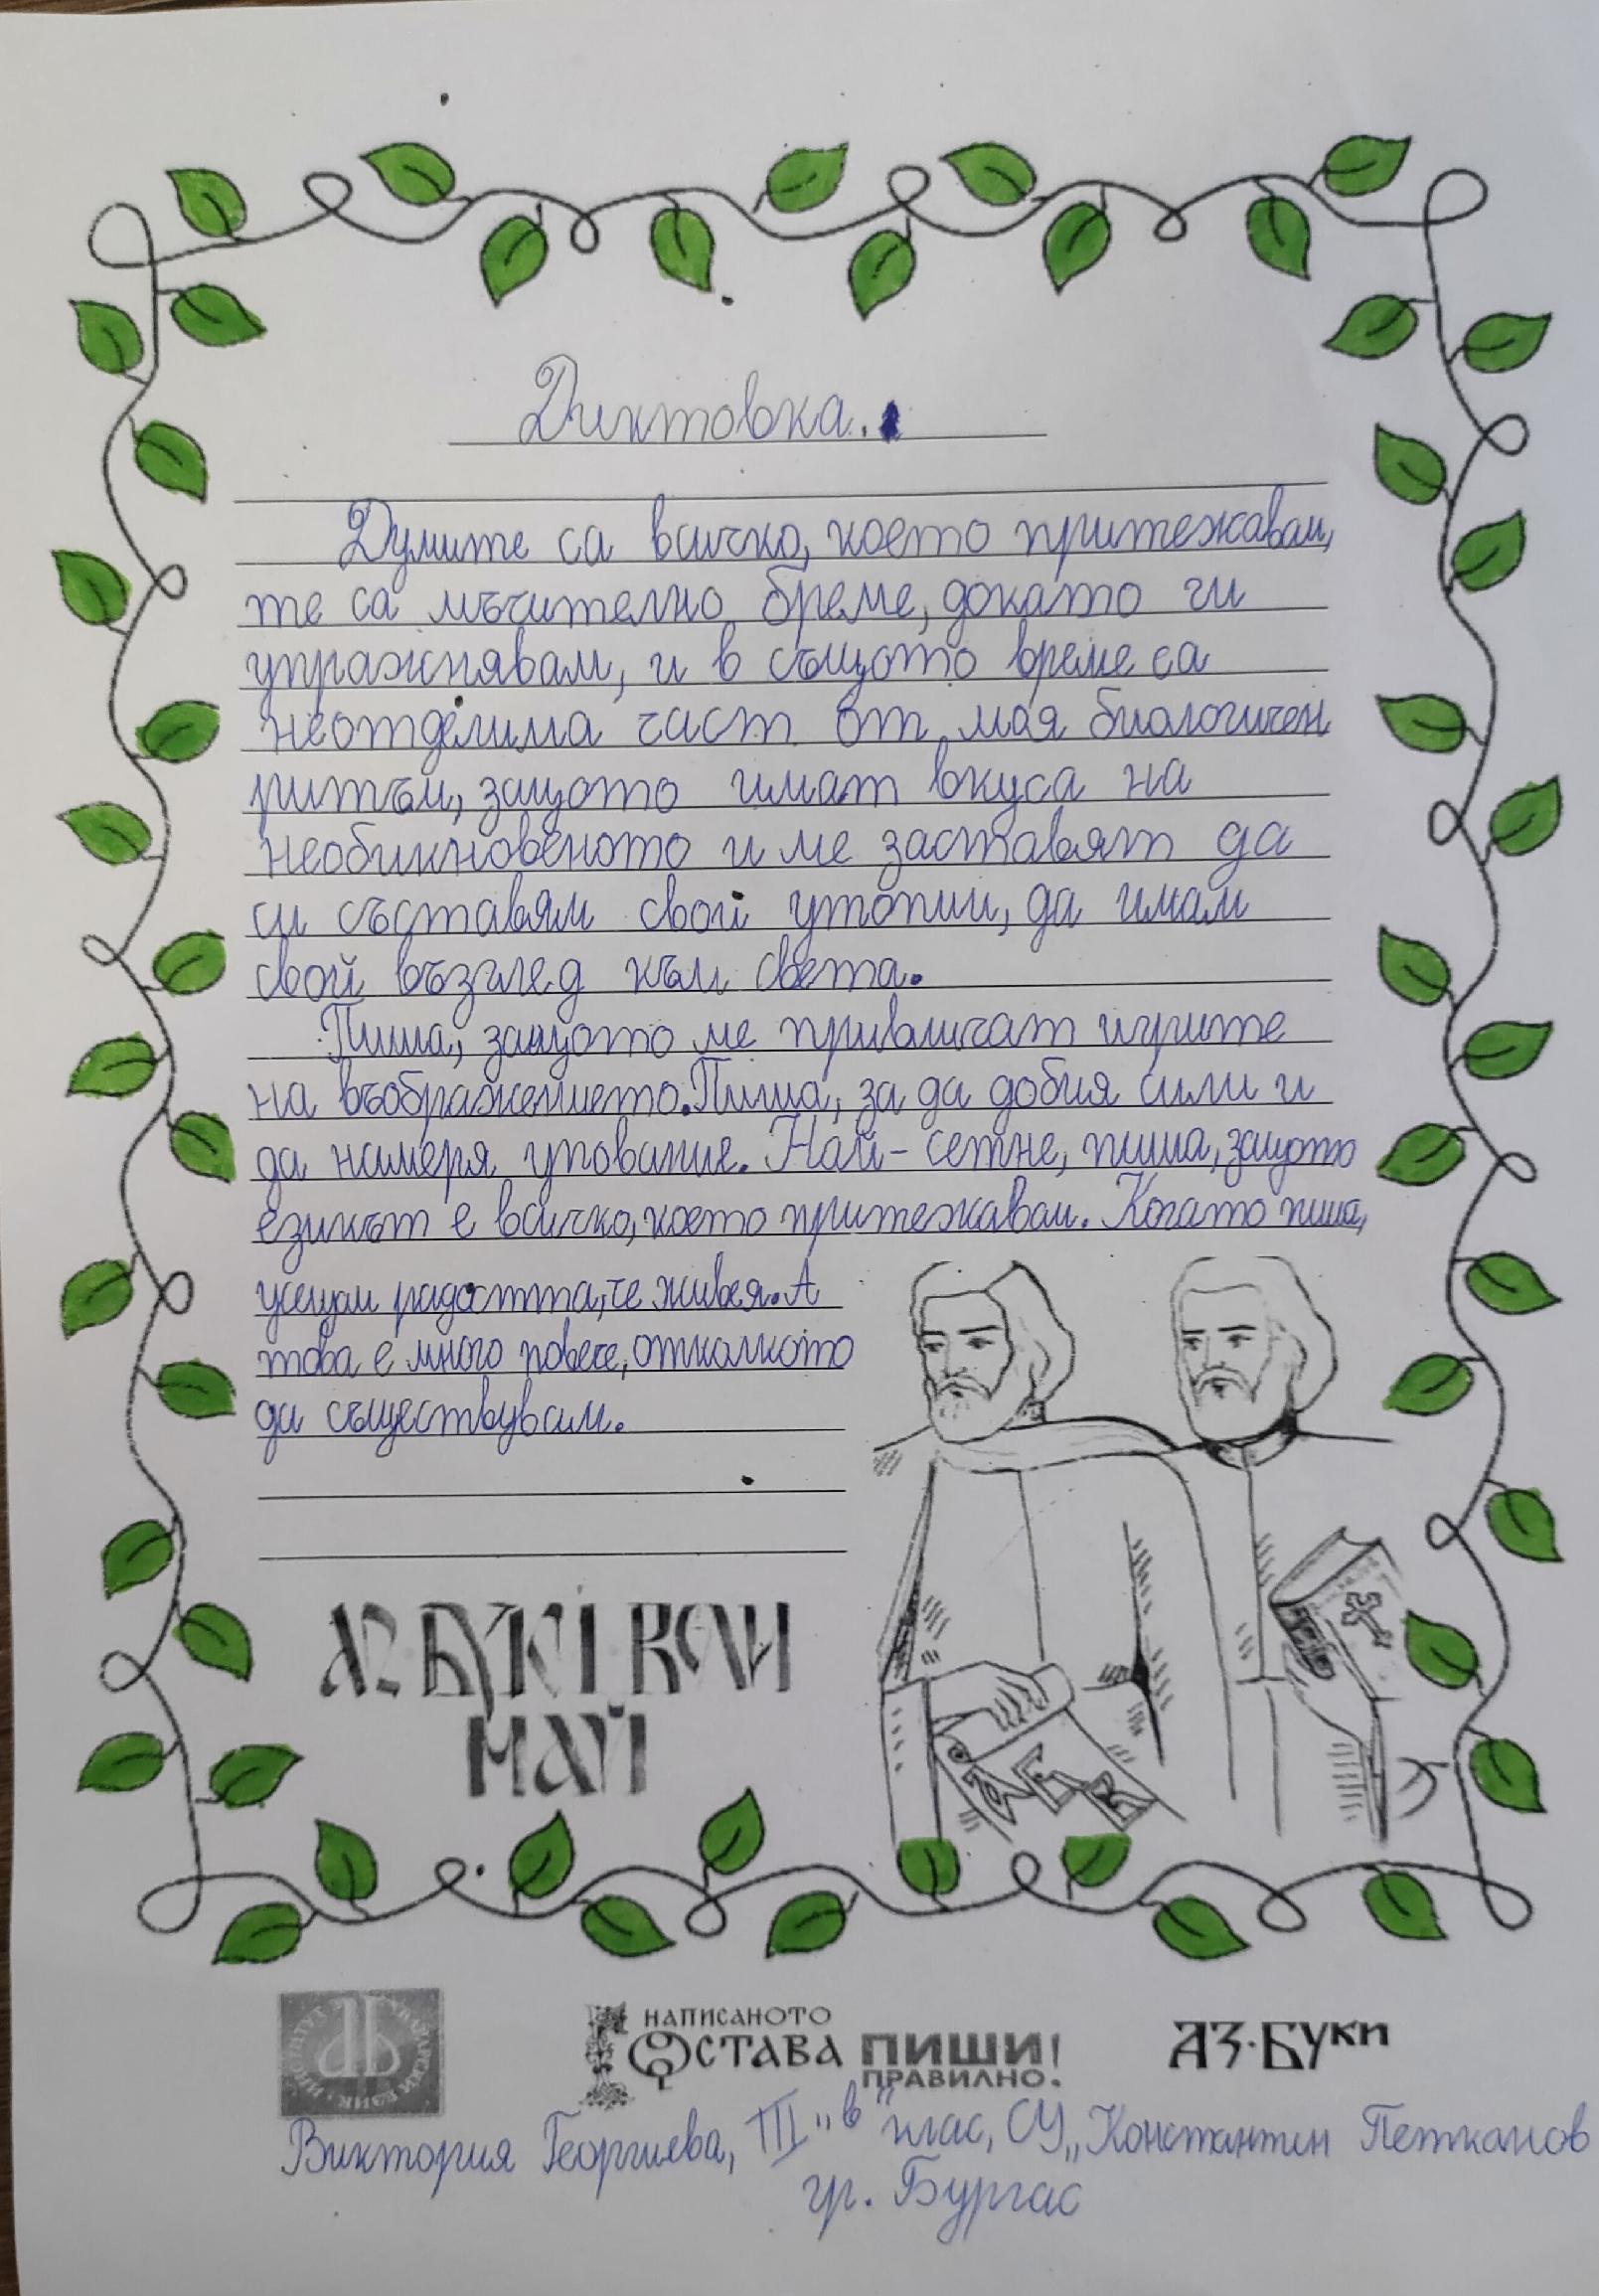 Диктовка.
Думите са всичко, което притежавам,
те са мъчително бреме, докато ги
упражнявам, и в същото време са
неотделима част от моя биологичен
ритъм, защото имат вкуса на
необикновеното и ме заставят да
си съставям свои утопии, да имам
свой възглед към света.
Пиша, защото ме привличат игрите
на въображението. Пиша, за да добия сили и
да намеря упование. Най-сетне, пиша, защото
езикът е всичко, което притежавам. Когато пиша,
усещам радостта, че живея. А
това е много повече, отколкото
да съществувам.
АЗ БУКИ ВЕДИ
МАЙ
НАПИСАНОТО
ОСТАВА ПИШИ!
ПРАВИЛНО.
АЗ·БУКИ
Виктория Георгиева, III "в" клас, СУ „Константин Петканов
гр. Бургас